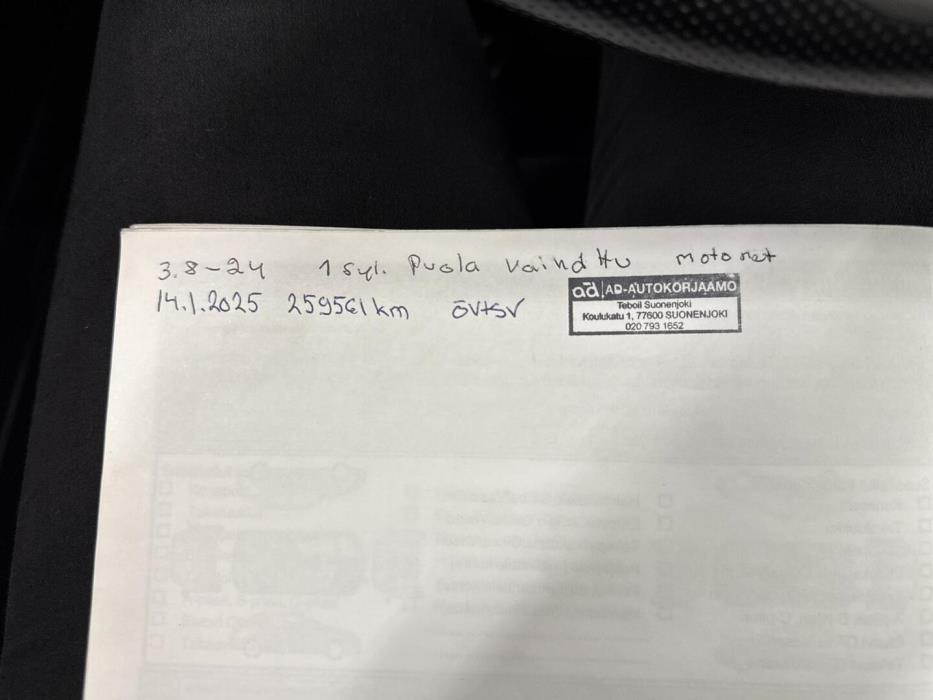 3.8-24 1 syl. Puola vaihdttu motonet
14.1.2025 259561 km öv+sv
ad AD-AUTOKORJAAMO
Teboil Suonenjoki
Koulukatu 1, 77600 SUONENJOKI
020 793 1652